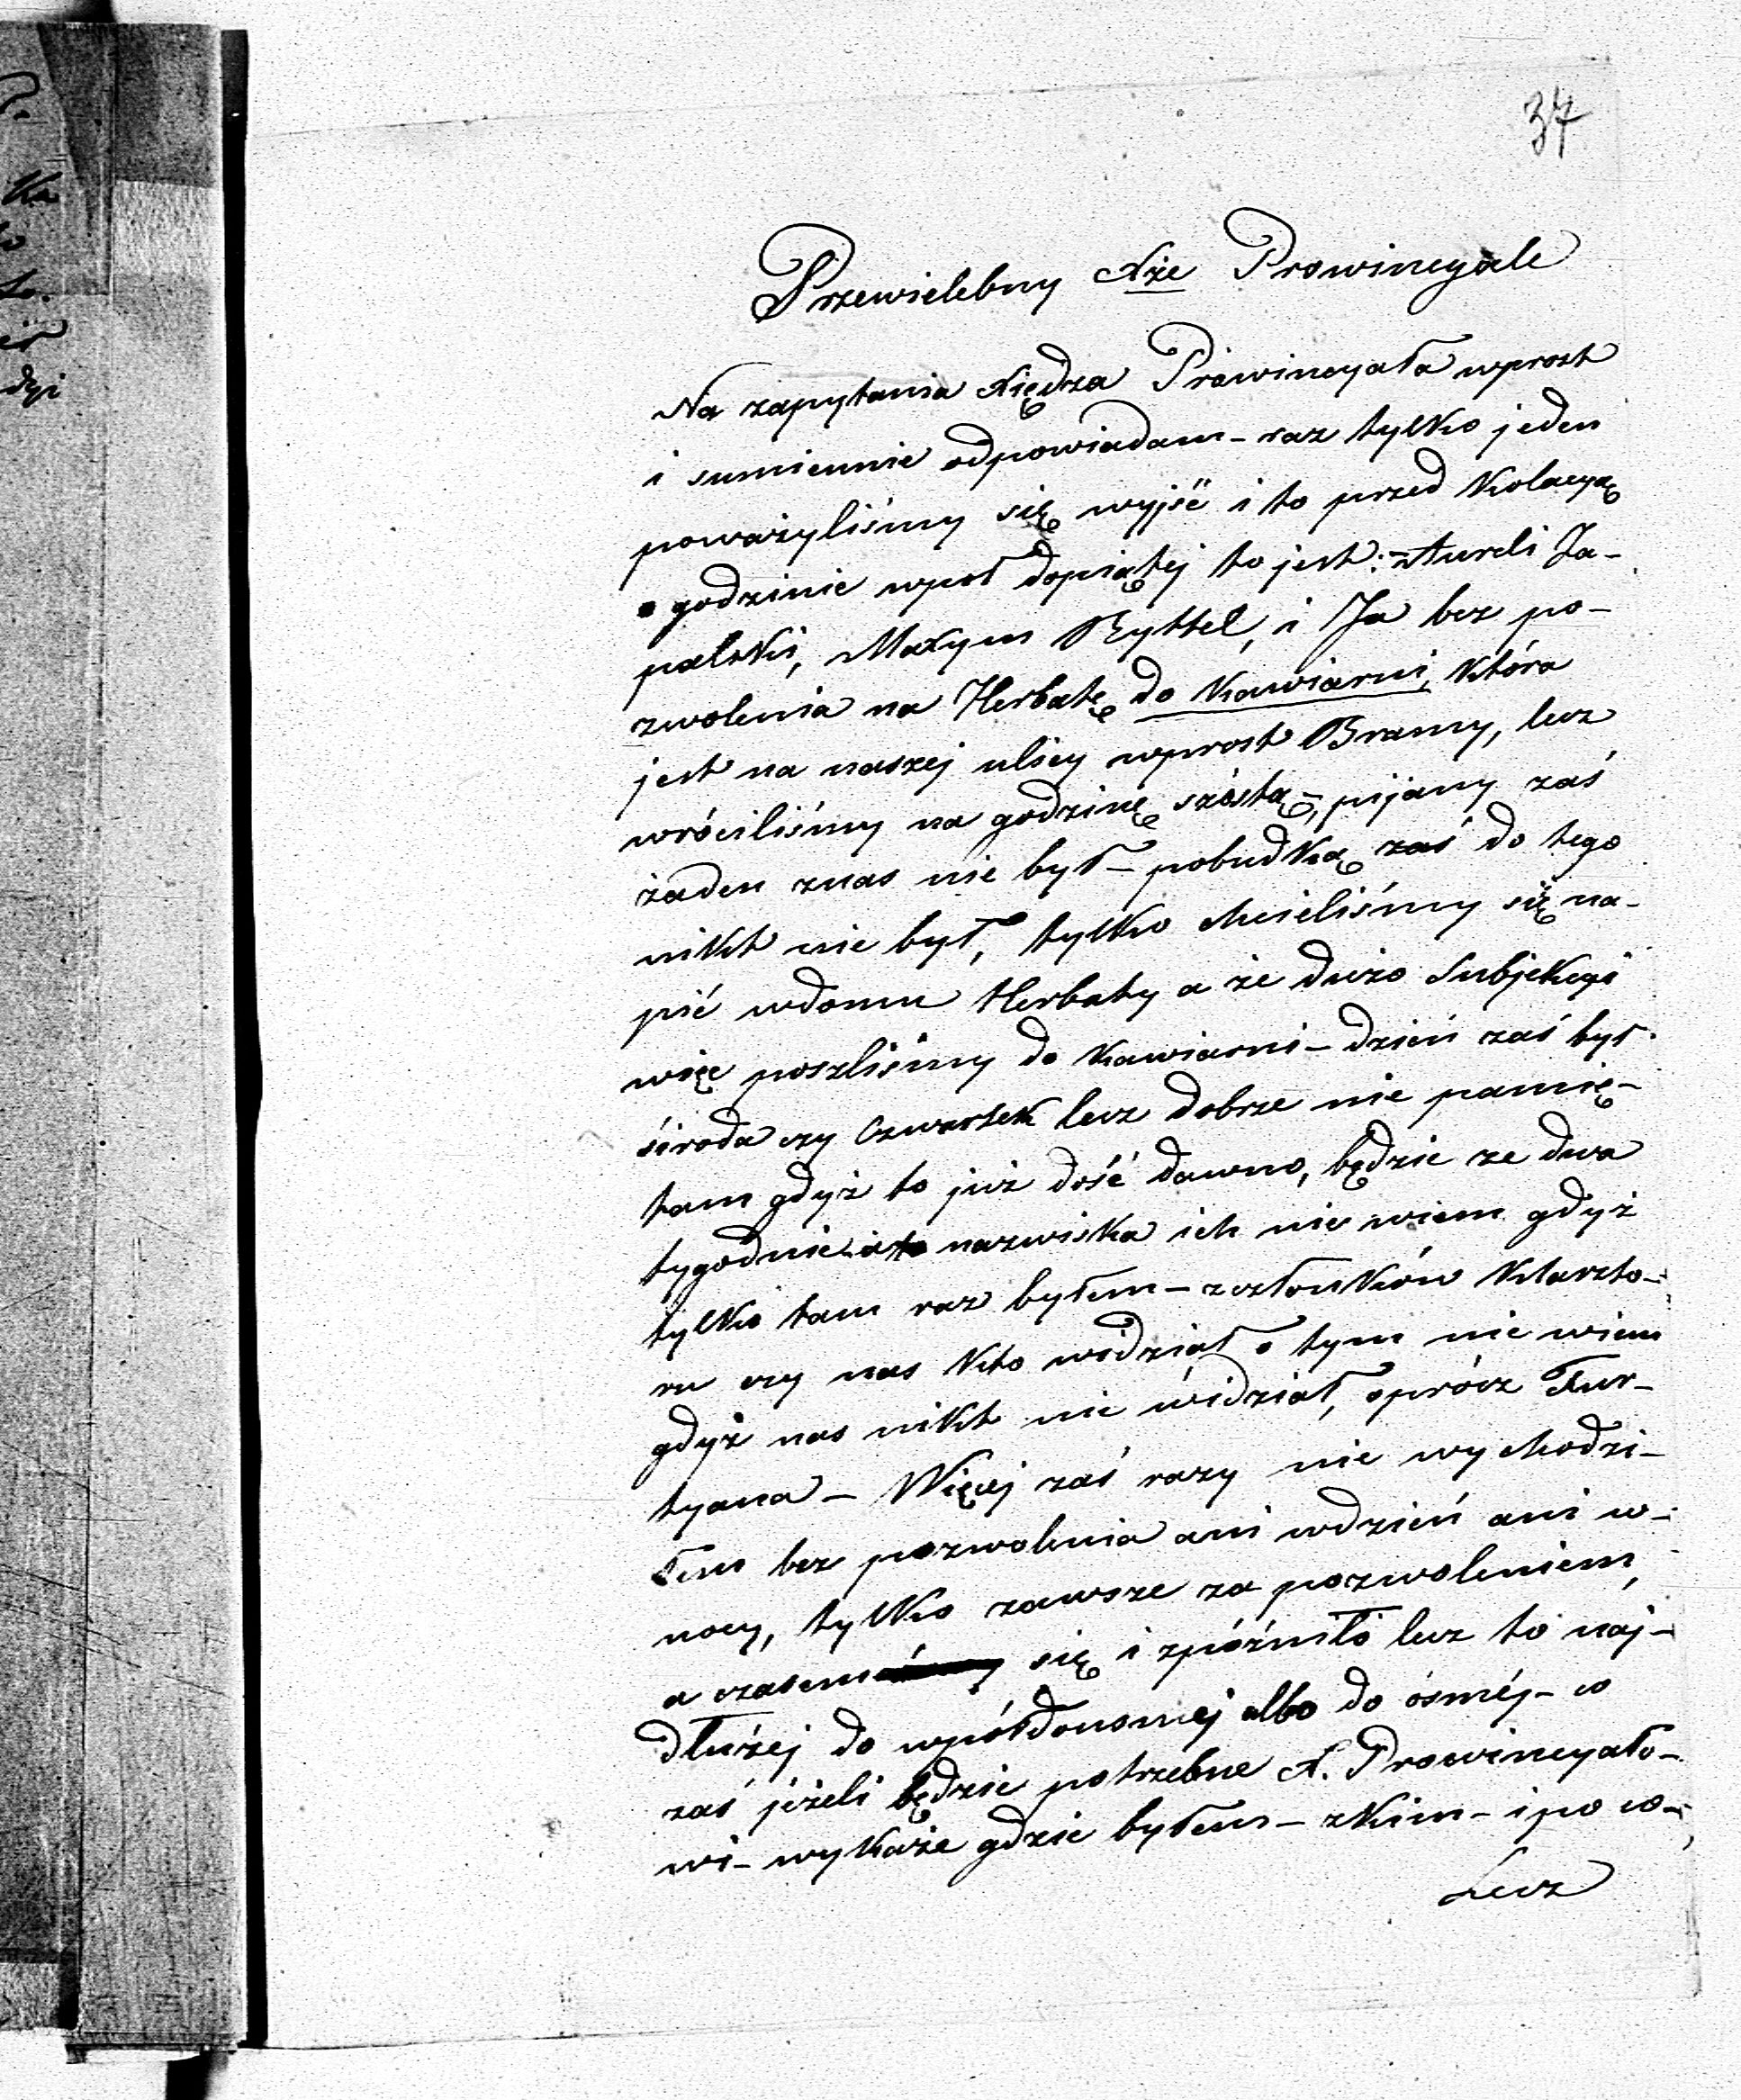 37
Przewielebny Xże Prowincyale
Na zapytania Xiędza Prowincyała wprost
i sumiennie odpowiadam – raz tylko jeden
poważyliśmy się wyjść i to przed Kolacyą
o godzinie wpoł dopiątej to jest: – Aureli Ja-
palski, Maxym Ryttel, i Ja bez po-
zwolenia na Herbatę do Kawiarni, która
jest na naszej ulicy wprost Bramy, lecz
wróciliśmy na godzinę szóstą –, pijany zaś
żaden znas nie był – pobudką zaś do tego
nikt nie był, tylko chcieliśmy się na-
pić wdomu Herbaty a że dużo Subjekcyi
więc poszliśmy do Kawiarni – dzień zaś był
środa czy Czwartek lecz dobrze nie pamię-
tam gdyż to już dość dawno, będzie ze dwa
tygodnie a nazwiska ich nie wiem gdyż
tylko tam raz byłem – zczłonków Klaszto-
ru czy nas kto widział o tym nie wiem
gdyż nas nikt nie widział, oprócz Fur-
tyana – Więcej zaś razy nie wychodzi-
łem bez pozwolenia ani wdzień ani w-
nocy, tylko zawsze za pozwoleniem,
a czasem się i zpóźniło lecz to naj-
dłużej do wpółdousmej albo do ósméj – co
zaś jeżeli będzie potrzebne X. Prowincyało-
wi – wykaże gdzie byłem – zkim – i po co –,
Lecz